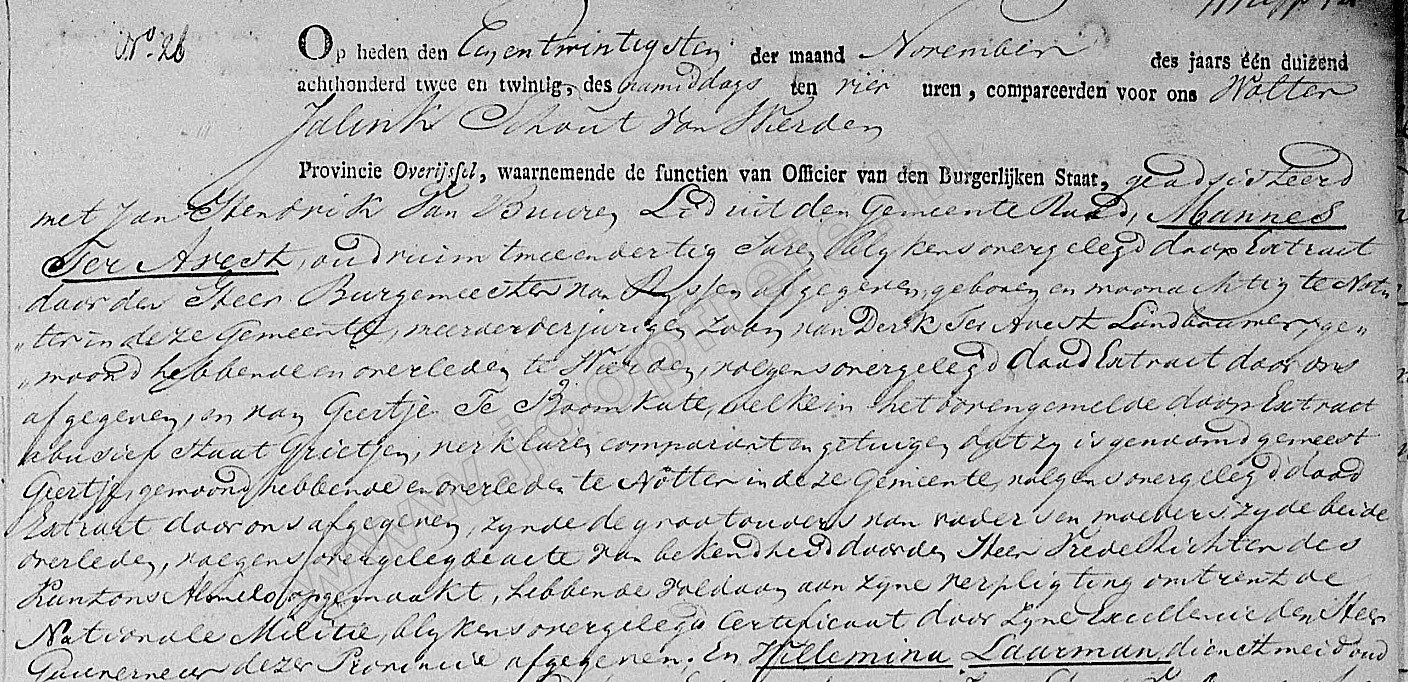 No. 26
Op heden den Eenentwintigsten der maand November des jaars één duizend
achthonderd twee en twintig, des namiddags ten vier uren, compareerden voor ons Wolter
Jalink Schout van Wierden
Provincie Overijssel, waarnemende de functien van Officier van den Burgerlijken Staat, geadsisteerd
met Jan Hendrik Van Buuren Lid uit den Gemeente Raad, Mannes
Ter Avest, oud ruim twee en dertig Jaren blykens overgelegd doop Extract
door den Heer Burgemeester van Ryssen afgegeven, geboren en woonachtig te Not„
„ter in deze Gemeente, meerderjarigen zoon van Derk Ter Avest Landbouwer, ge„
„woond hebbende en overleden te Wierden, volgens overgelegd dood Extract door ons
afgegeven, en van Geertje Te Boomkate, welke in het vorengemelde doop Extract
abusief staat Grietjen, verklaren comparanten getuigen dat zy is genoemd geweest
Geertje, gewoond hebbende en overleden te Nötter in deze Gemeente, volgens overgelegd dood
Extract door ons afgegeven, zynde de grootouders van vaders en moeders zyde beide
overleden, volgens overgelegde acte van bekendheid door den Heer Vrede Richter des
Kantons Almelo opgemaakt, hebbende voldaan aan zyne verpligting omtrent de
Nationale Militie, blykens overgelegd Certificaat door Zyne Excellencie den Heer
Gouverneur dezer Provincie afgegeven. En Willemina Laarman, dienstmeid oud
www.jooptie.nl